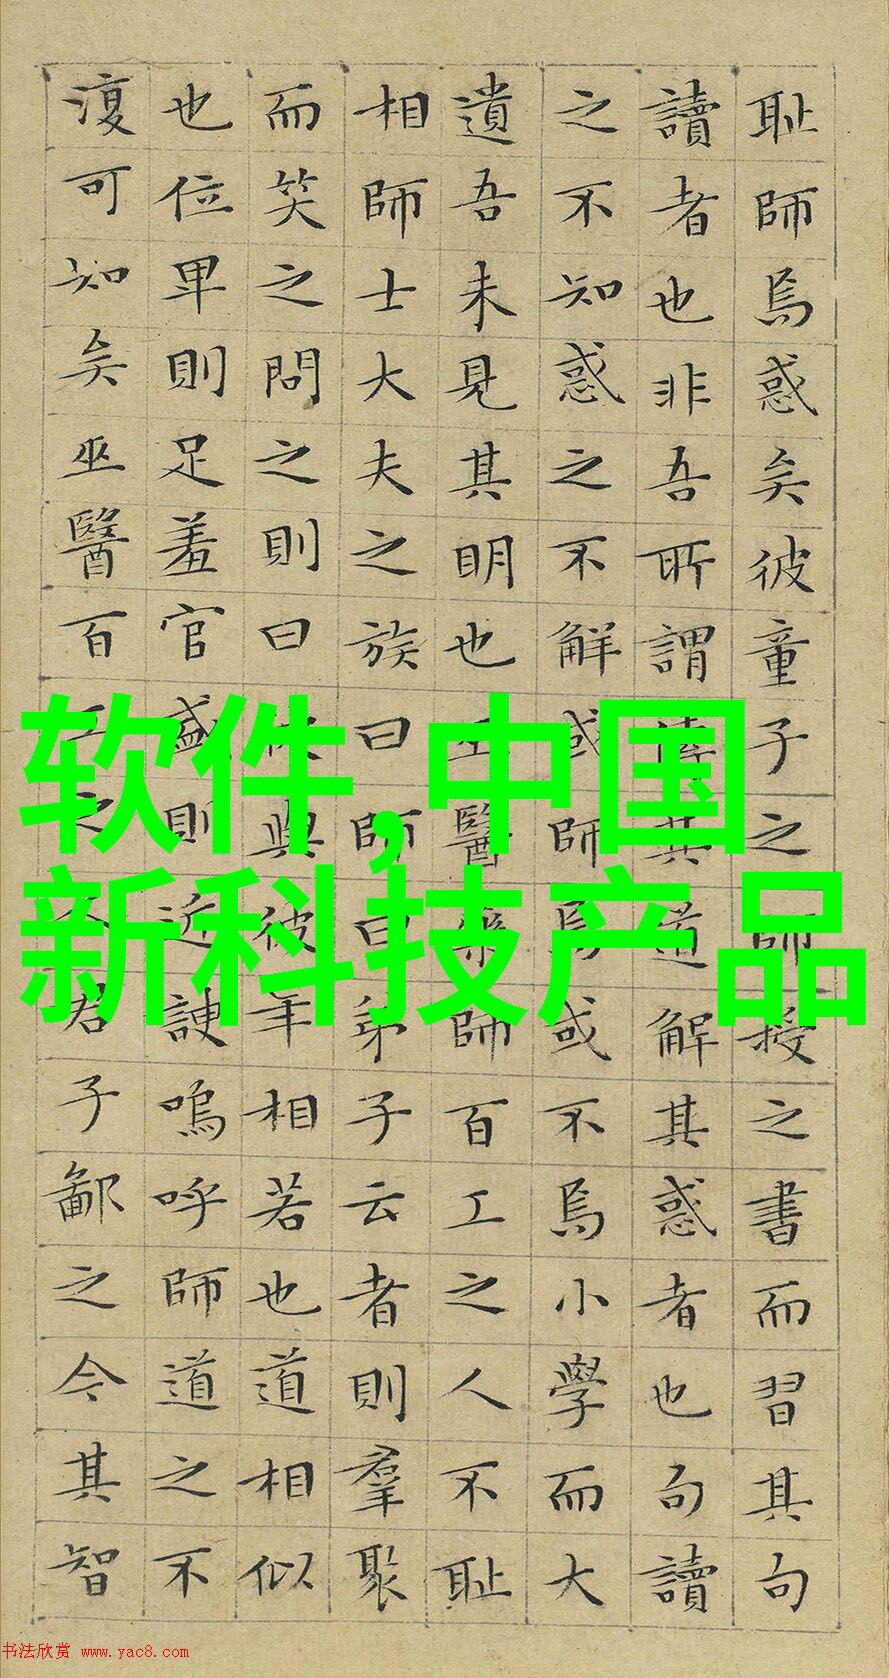 耻師焉惑矣彼童子之師授之書而習其句
讀者也非吾所謂傳其道解其惑者也句讀
之不知惑之不解或師焉或不焉小學而大
遺吾未見其明也巫醫樂師百工之人不耻
相師士大夫之族曰師曰弟子云者則羣聚
而笑之問之則曰彼與彼年相若也道相似
也位卑則足羞官盛則近諛嗚呼師道之不
復可知矣巫醫百工之君子鄙之今其智
软件,中国
新科技产品
书法欣赏 www.yac8.com